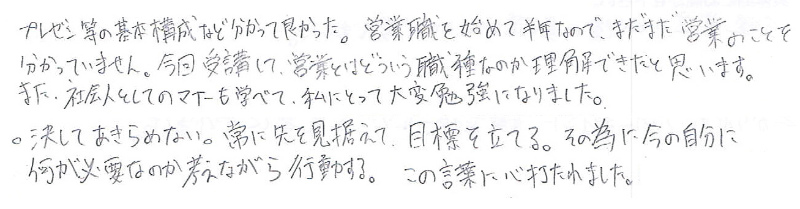 プレゼン等の基本構成など分かって良かった。営業職を始めて半年なので、まだまだ営業のことを
分かっていません。今回受講して、営業とはどういう職種なのか理解できたと思います。
また、社会人としてのマナーも学べて、私にとって大変勉強になりました。
。決してあきらめない。常に先を見据えて、目標を立てる。その為に今の自分に
何が必要なのか考えながら行動する。この言葉に心打たれました。